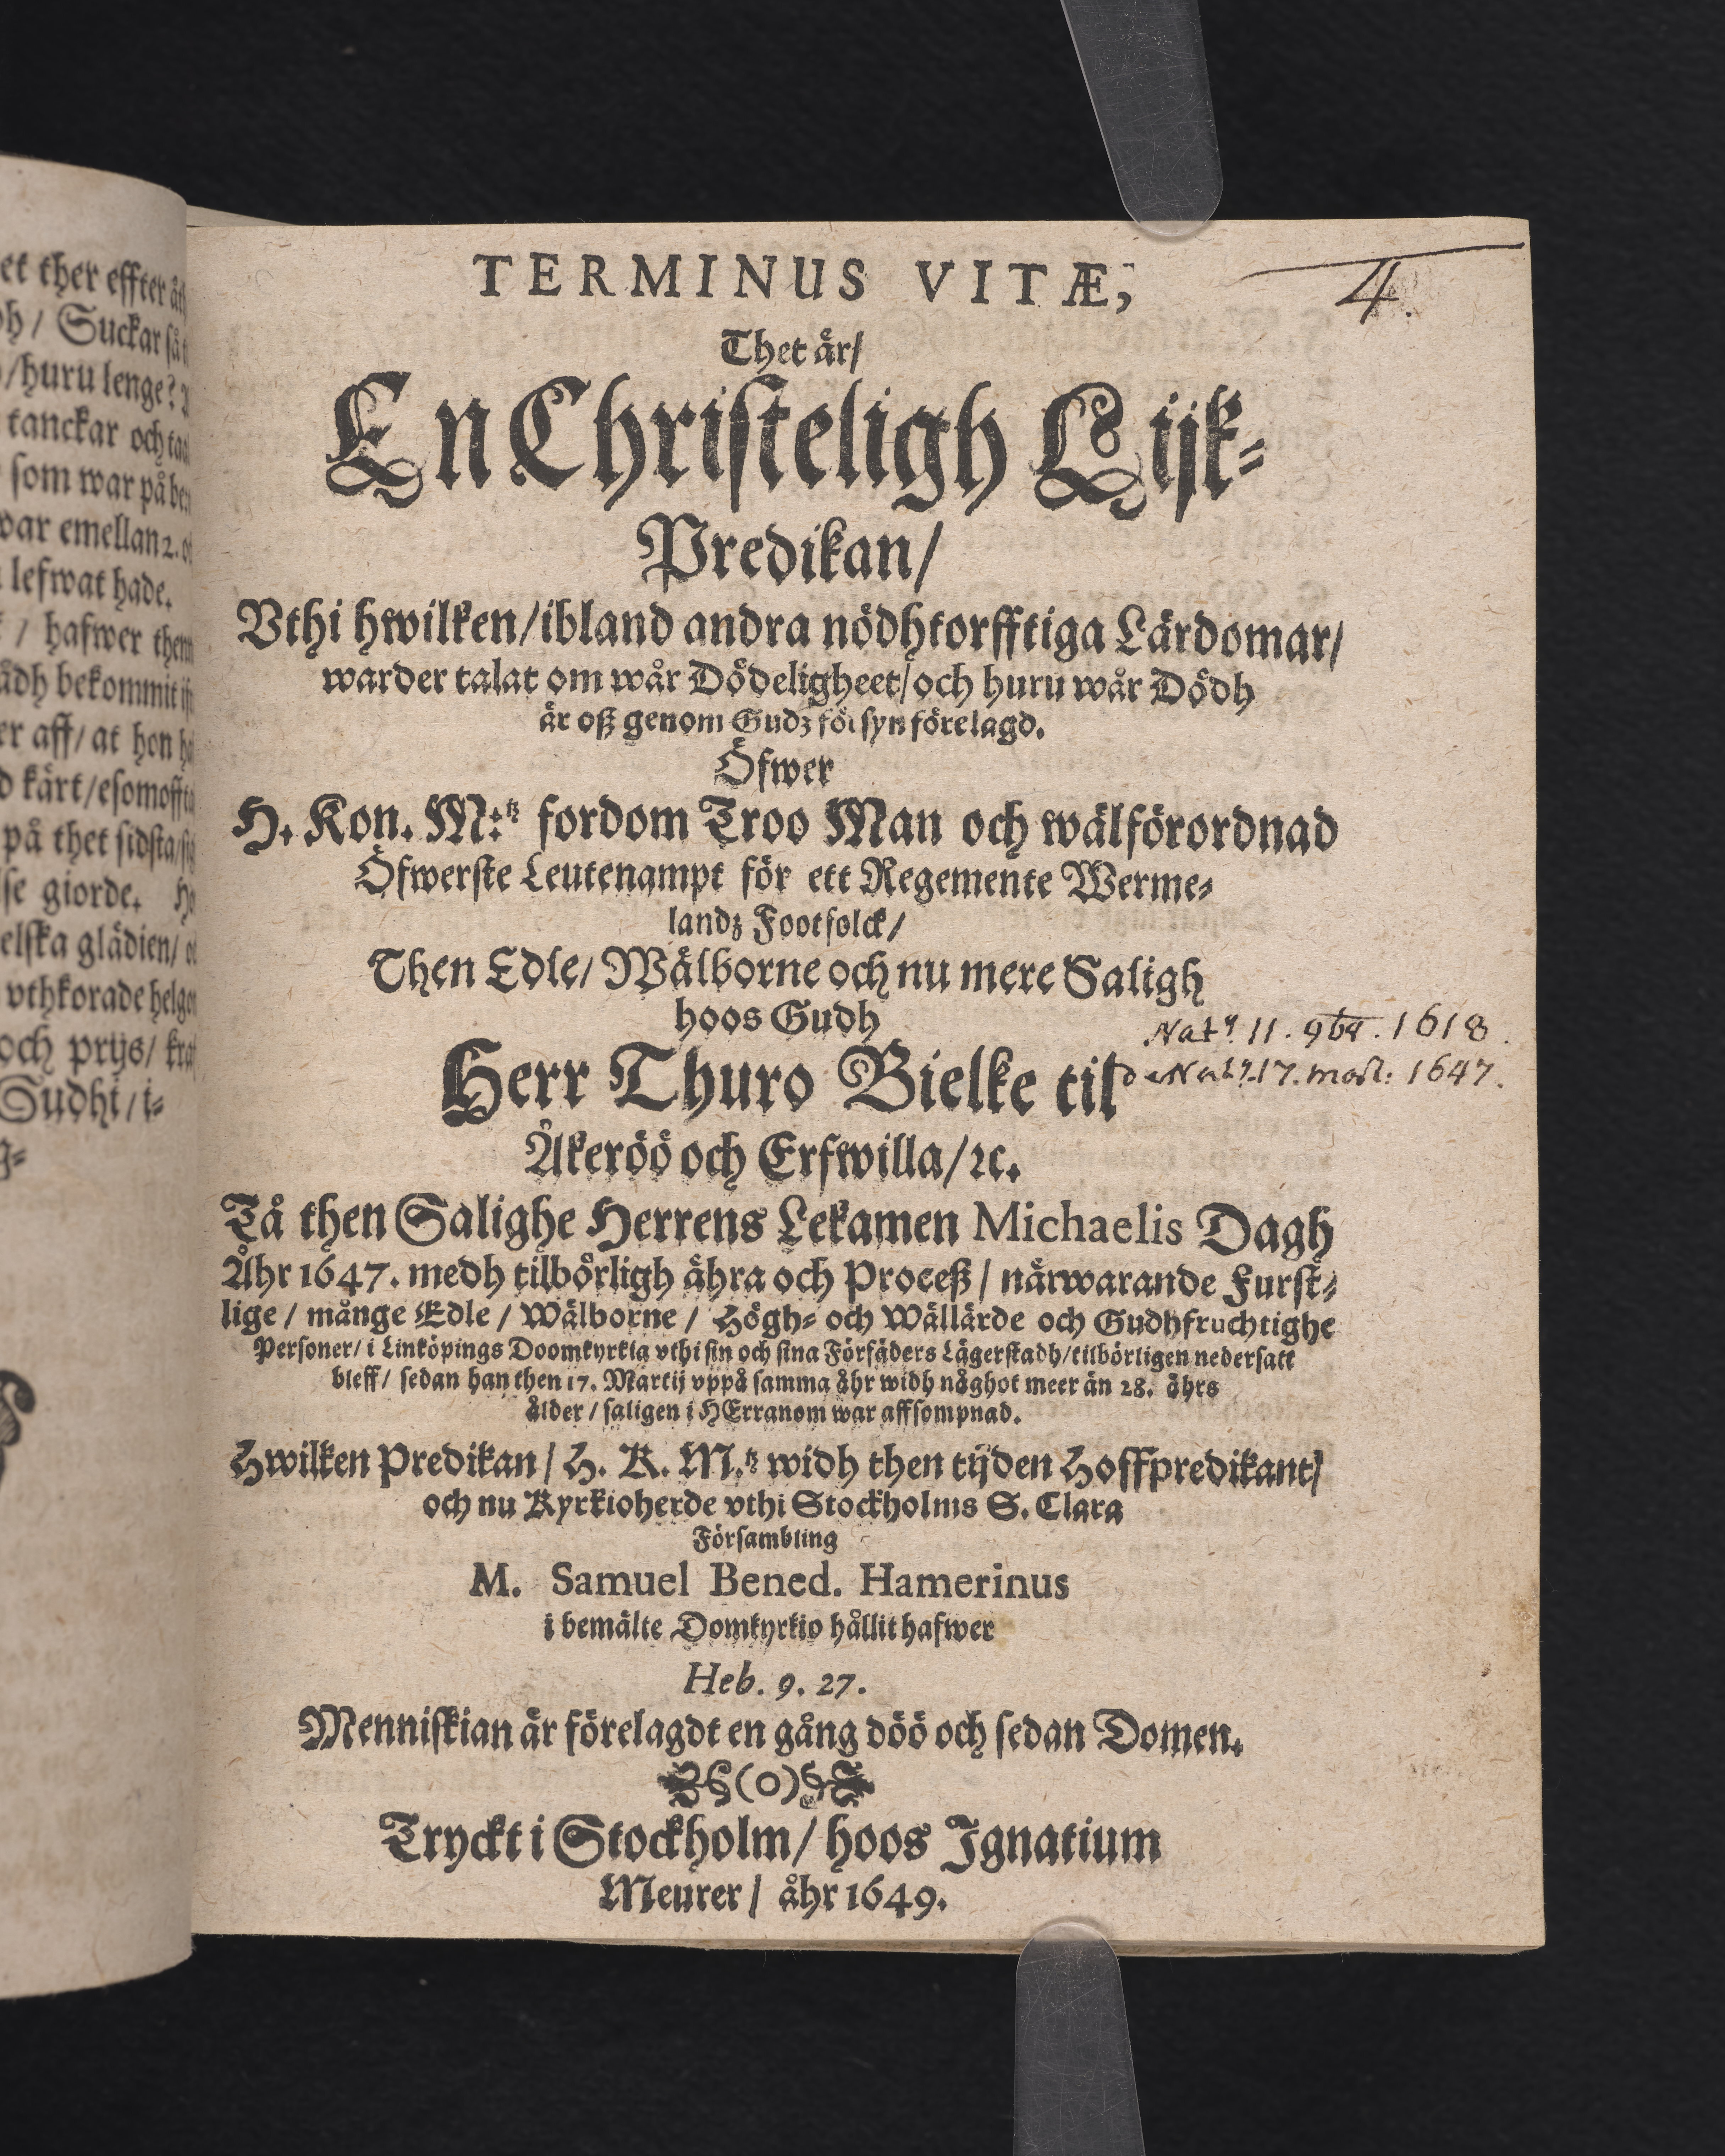 et ther effter
/ Suckar
/ huru lenge?
tanckar och
som war på
emellan 2.
lefwat hade.
/ hafwer them
bekommit
aff / at hon
kärt / esomoffta
på thet sidsta
giorde.
glädien /
vthkorade
och prijs /
TERMINUS VITÆ,
4.
Thet är /
En Christeligh Lijk-
Predikan /
Vthi hwilken / ibland andra nödhtorfftiga Lärdomar /
warder talat om wår Dödeligheet / och huru wår Dödh
är oß genom Gudz försyn förelagd.
Öfwer
H. Kon. M:tz fordom Troo Man och wälförordnad
Öfwerste Leutenampt för ett Regemente Werme-
landz Footfolck /
Then Edle / Wälborne och nu mere Saligh
hoos Gudh
11. 9br. 1618.
Herr Thuro Bielke til
17. 1647.
Åkeröö och Erfwilla / ꝛc.
Tå then Salighe Herrens Lekamen Michaelis Dagh
Åhr 1647. medh tilbörligh ähra och Proceß / närwarande Furst-
lige / månge Edle / Wälborne / Högh- och Wällärde och Gudhfruchtighe
Personer / i Linköpings Doomkyrkia vthi sin och sina Förfäders Lägerstadh / tilbörligen nedersatt
bleff / sedan han then 17. Martij vppå samma åhr widh någhot meer än 28. åhrs
ålder / saligen i HErranom war affsompnad.
Hwilken Predikan / H. K. M.tz widh then tijden Hoffpredikant /
och nu Kyrkioherde vthi Stockholms S. Clara
Försambling
M. Samuel Bened. Hamerinus
i bemälte Domkyrkio hållit hafwer
Heb. 9. 27.
Menniskian är förelagdt en gång döö och sedan Domen.
(o)
Tryckt i Stockholm / hoos Ignatium
Meurer / åhr 1649.